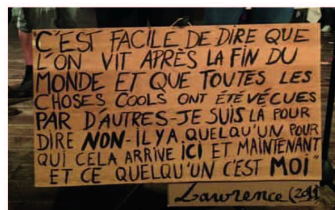 C'EST FACILE DE DIRE QUE
L'ON VIT APRÈS LA FIN DU
MONDE ET QUE TOUTES LES
CHOSES COOLS ONT ÉTÉ VÉCUES
PAR D'AUTRES - JE SUIS LÀ POUR
DIRE NON - IL Y A QUELQU'UN POUR
QUI CELA ARRIVE ICI ET MAINTENANT
ET CE QUELQU'UN C'EST MOI"
Lawrence (2011